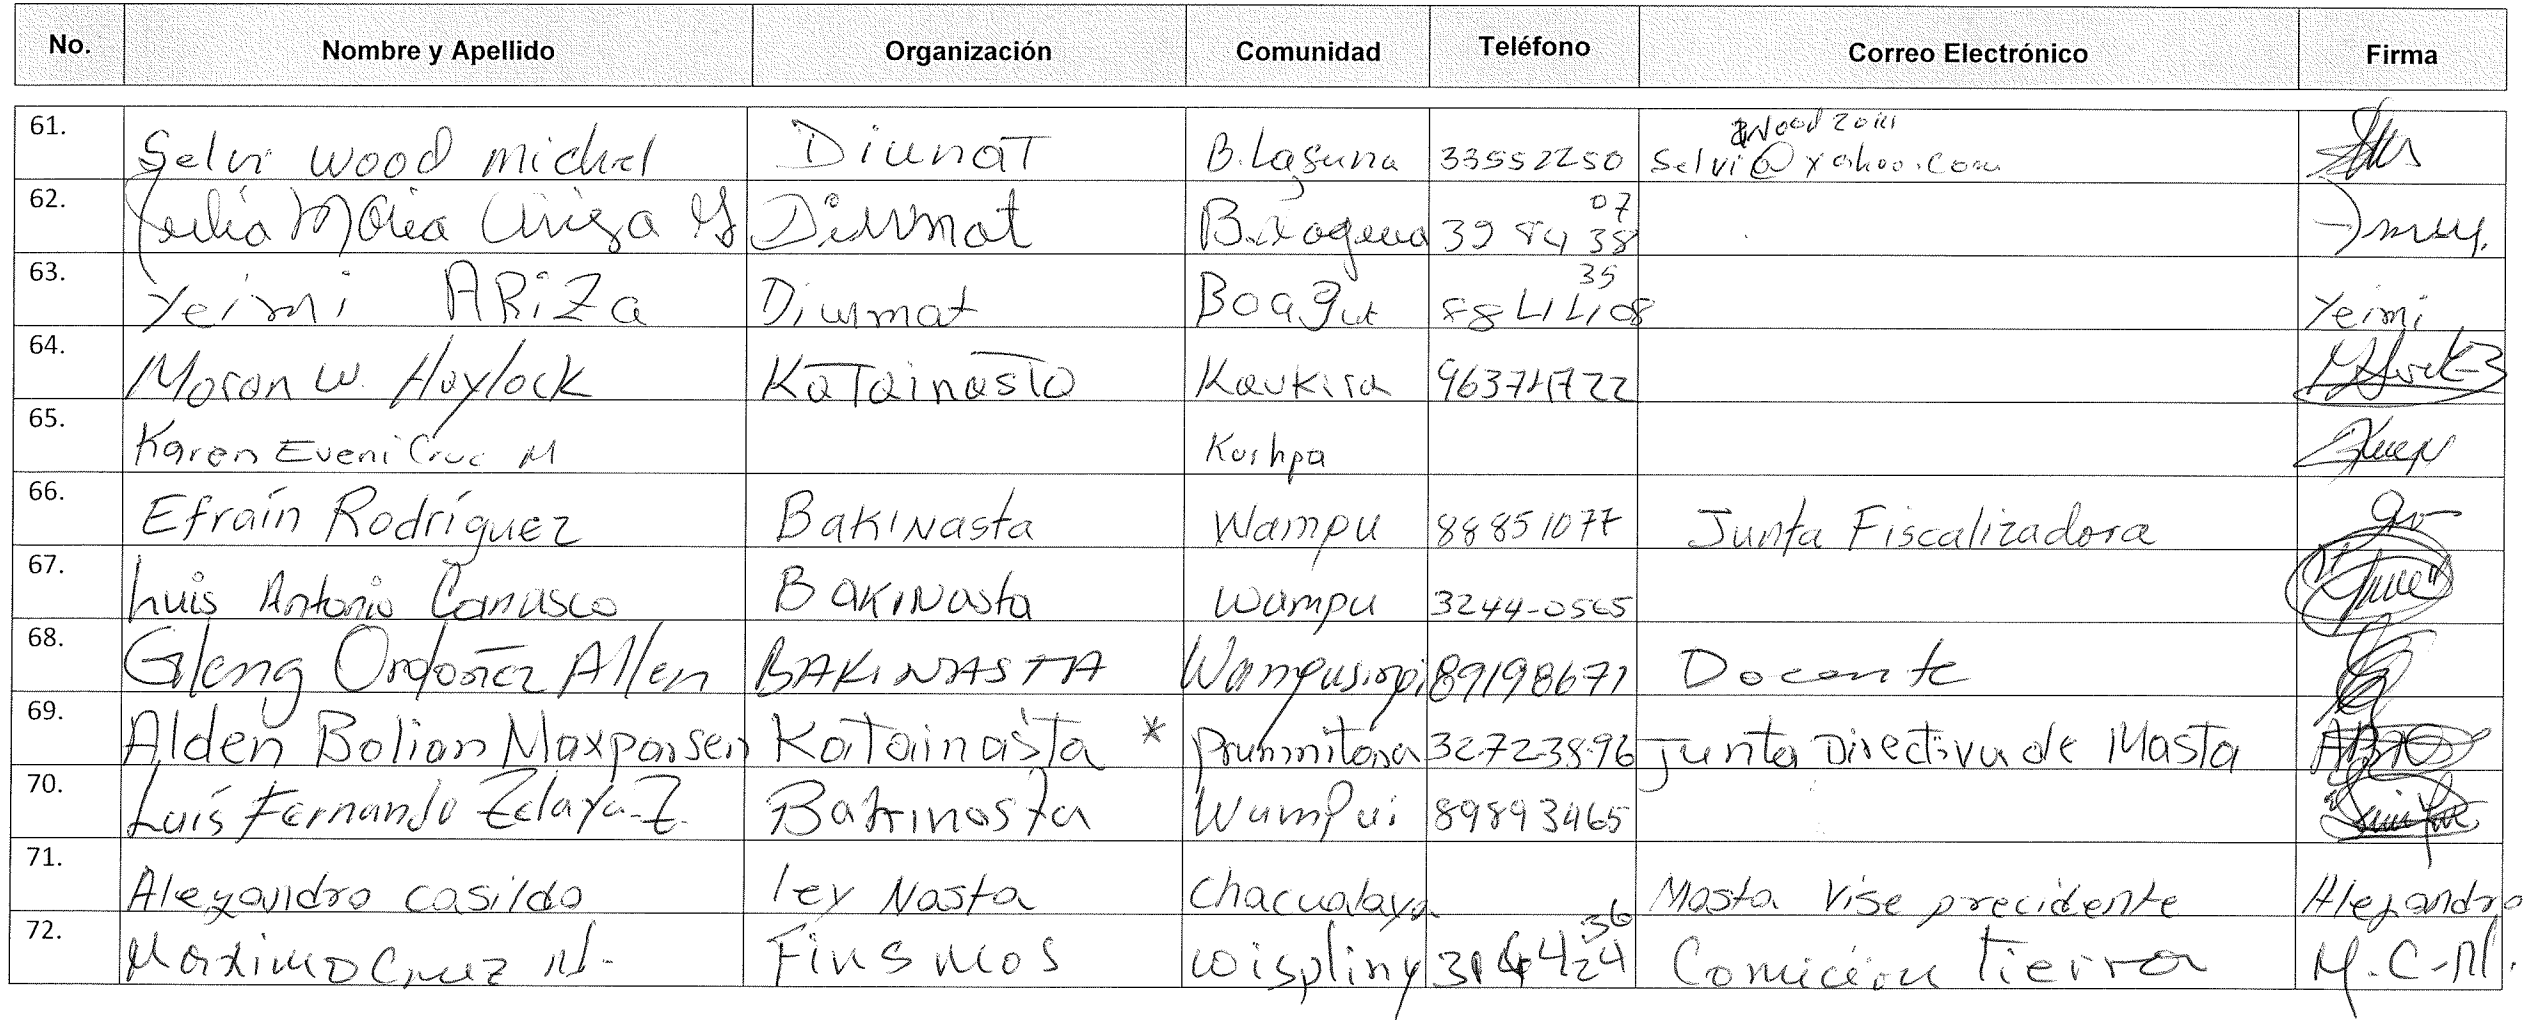 No. Nombre y Apellido Organización Comunidad Teléfono Correo Electrónico Firma
61. Selvi wood michel Diunat B.Laguna 33552250 wood2011 selvi@yahoo.com
62. Maria Ariza Diunmat 07 39 84 38
63. Yeimi ARiZa Diunmat 35 88 44 08 Yeimi
64. Moson W. Haylock KaTainasTa Kaukira
65. Karen Eveni Cruc M Kushpa
66. Efraín Rodríguez BakiNasta Wampu 88851077 Junta Fiscalizadora
67. Luis Antonio Carrasco BakiNasta wampu 3244-0565
68. Gleng Ordoñez Allen BAKINASTA Wampusirpi 89198671 Docente
69. Alden Bolian Maxparsen KaTainasta * prumnitara 32723896 Junta Directiva de Masta
70. Luís Fernando Zelaya Z. Bakinasta Wampui 89893465
71. Alejandro casildo ley Nasta Chacualaya Masta Vise precidente Alejandro
72. Maximo Cruz M. Finsmos wispliny 36 Comicion Tierra M.C.M.